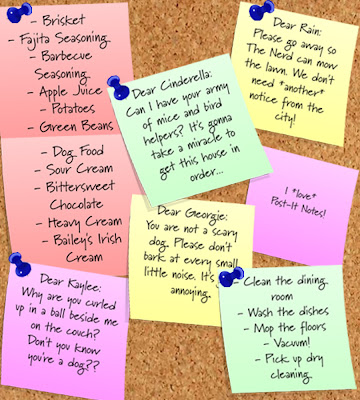 - Brisket
- Fajita Seasoning
- Barbecue
Seasoning
- Apple Juice
- Potatoes
- Green Beans
- Dog Food
- Sour Cream
- Bittersweet
Chocolate
- Heavy Cream
- Bailey's Irish
Cream
Dear Cinderella:
Can I have your army
of mice and bird
helpers? It's gonna
take a miracle to
get this house in
order...
Dear Rain:
Please go away so
The Nerd can mow
the lawn. We don't
need *another*
notice from the
city!
I *love*
Post-It Notes!
Dear Georgie:
You are not a scary
dog. Please don't
bark at every small
little noise. It's
annoying.
Dear Kaylee:
Why are you curled
up in a ball beside me
on the couch?
Don't you know
you're a dog??
- Clean the dining
room
- Wash the dishes
- Mop the floors
- Vacuum!
- Pick up dry
cleaning.